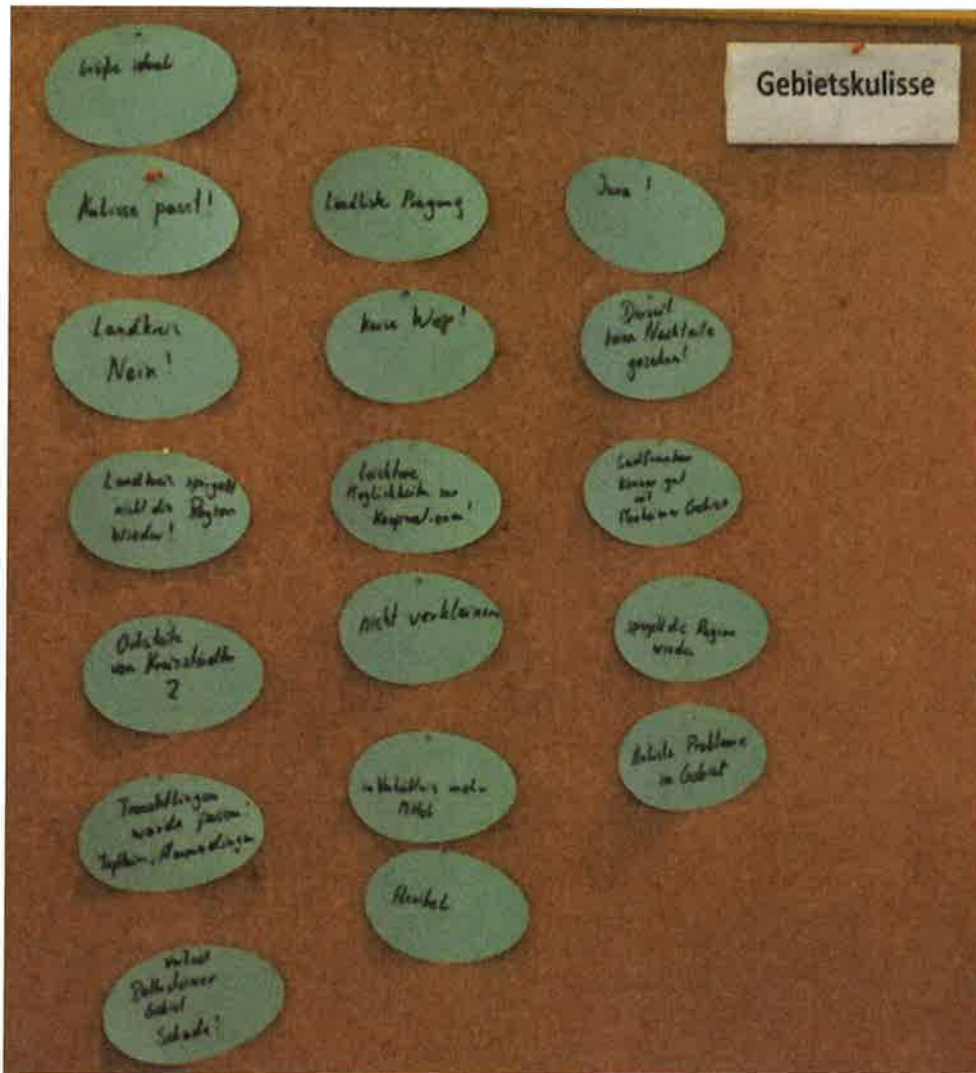 Gebietskulisse
Größe ideal
Kulisse passt!
Landkreis
Nein!
Landkreis spiegelt
nicht die Region
wieder!
Ortsteile
von Kreisstädten
?
Treuchtlingen
würde passen
Verlust
Gebiet
Schade!
Ländliche Prägung
kurze Wege!
leichtere
Möglichkeiten zur
Kooperation!
nicht verkleinern
im Verhältnis mehr
Mittel
Flexibel
Jura!
Derzeit
keine Nachteile
gesehen!
können gut
mit
Monheimer Gebiet
spiegelt die Region
wieder
Probleme
im Gebiet